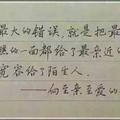 最大的错误，就是把最
的一面都给了最亲近的
宽容给了陌生人．
——向至亲至爱的